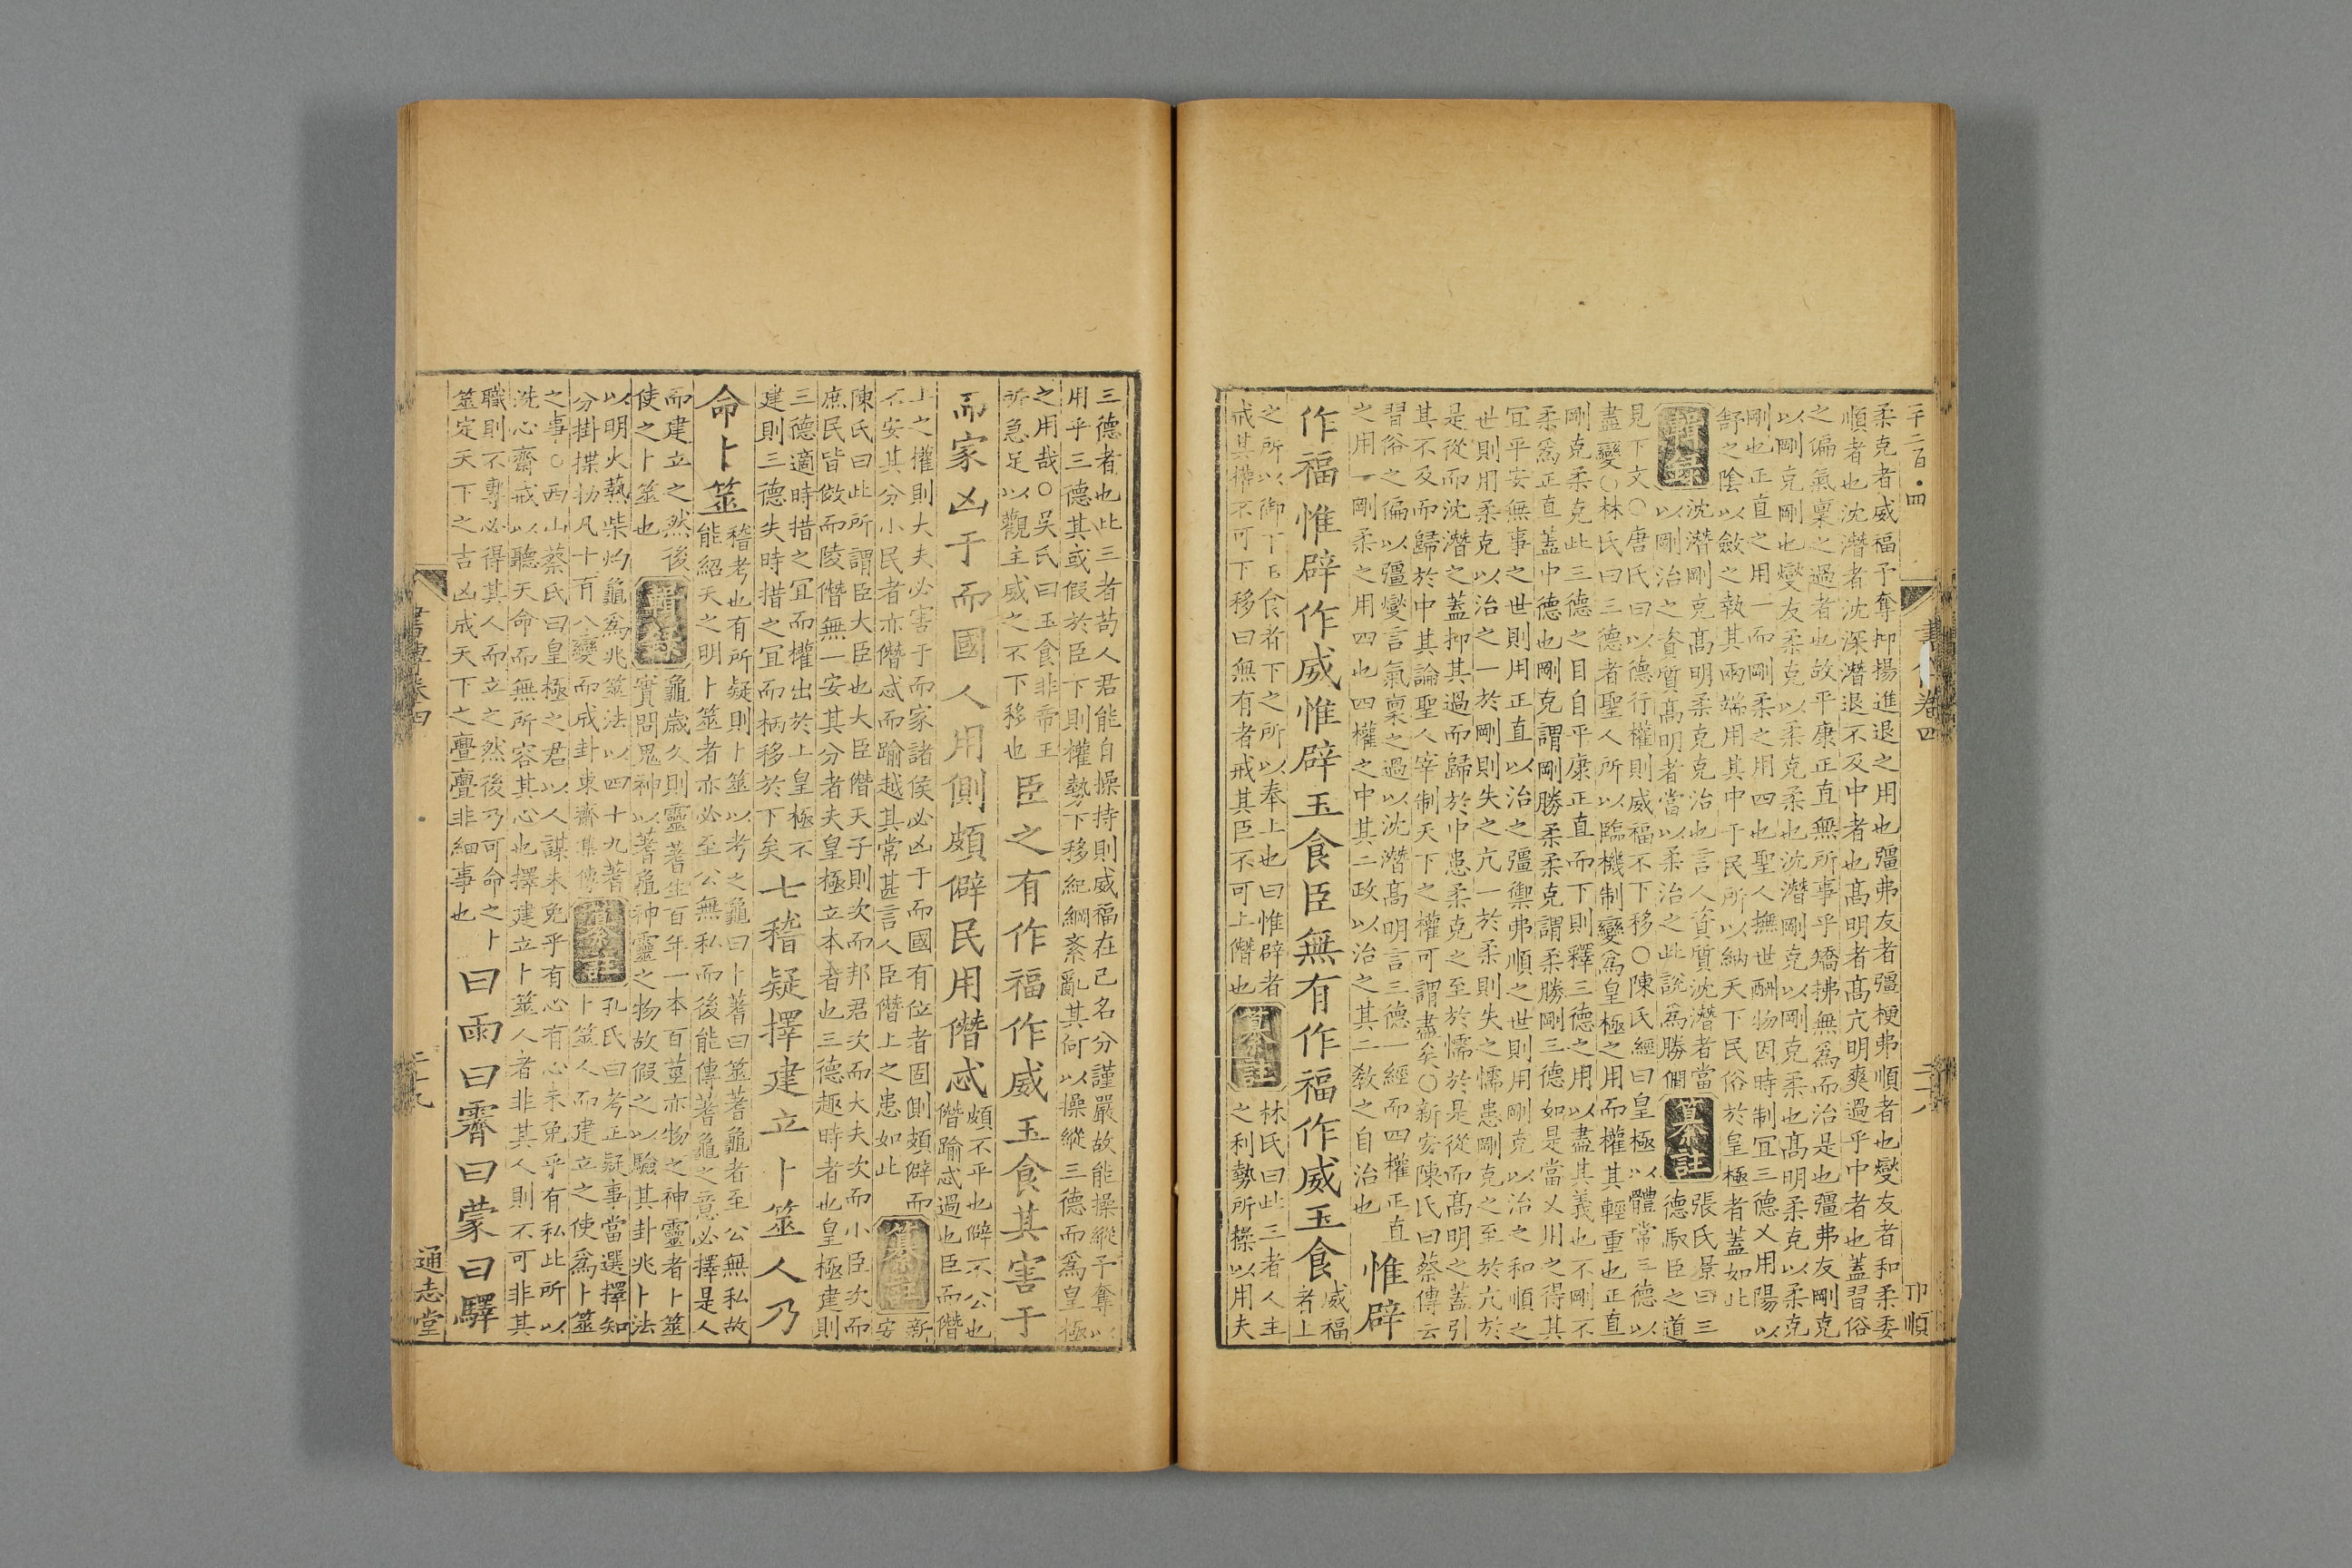 千二百四
書 卷四
卩順
柔克者威福予奪抑揚進退之用也彊弗友者彊梗弗順者也燮友者和柔委
順者也沈潛者沈深潛退不及中者也高明者高亢明爽過乎中者也蓋習俗
之偏氣稟之過者也故平康正直無所事乎矯拂無為而治是也彊弗友剛克
以剛克剛也燮友柔克以柔克柔也沈潛剛克以剛克柔也高明柔克以柔克
剛也正直之用一而剛柔之用四也聖人撫世酬物因時制宜三德乂用陽以
舒之陰以斂之執其兩端用其中于民所以納天下民俗於皇極者蓋如此
輯錄
沈潛剛克高明柔克克治也言人資質沈潛者當
以剛治之資質高明者當以柔治之此說為勝僩
纂註
張氏景曰三
德馭臣之道
見下文○唐氏曰以德行權則威福不下移○陳氏經曰皇極以體常三德以
盡變○林氏曰三德者聖人所以臨機制變為皇極之用而權其輕重也正直
剛克柔克此三德之目自平康正直而下則釋三德之用以盡其義也不剛不
柔為正直蓋中德也剛克謂剛勝柔柔克謂柔勝剛三德如是當乂用之得其
宜平安無事之世則用正直以治之彊禦弗順之世則用剛克以治之和順之
世則用柔克以治之一於剛則失之亢一於柔則失之懦患剛克之至於亢於
是從而沈潛之蓋抑其過而歸於中患柔克之至於懦於是從而高明之蓋引
其不及而歸於中其論聖人宰制天下之權可謂盡矣○新安陳氏曰蔡傳云
習俗之偏以彊燮言氣稟之過以沈潛高明言三德一經而四權正直
之用一剛柔之用四也四權之中其二政以治之其二教之自治也
惟辟
作福惟辟作威惟辟玉食臣無有作福作威玉食
威福
者上
之所以御下玉食者下之所以奉上也曰惟辟者
戒其權不可下移曰無有者戒其臣不可上僭也
纂註
林氏曰此三者人主
之利勢所操以用夫
三德者也此三者苟人君能自操持則威福在己名分謹嚴故能操縱予奪以
用乎三德其或假於臣下則權勢下移紀綱紊亂其何以操縱三德而為皇極
之用哉○吳氏曰玉食非帝王
所急足以觀主威之不下移也
臣之有作福作威玉食其害于
而家凶于而國人用側頗僻民用僭忒
頗不平也僻不公也
僭踰忒過也臣而僭
上之權則大夫必害于而家諸侯必凶于而國有位者固側頗僻而
不安其分小民者亦僭忒而踰越其常甚言人臣僭上之患如此
纂註
新
安
陳氏曰此所謂臣大臣也大臣僭天子則次而邦君次而大夫次而小臣次而
庶民皆倣而陵僭無一安其分者夫皇極立本者也三德趣時者也皇極建則
三德適時措之宜而權出於上皇極不
建則三德失時措之宜而柄移於下矣
七稽疑擇建立卜筮人乃
命卜筮
稽考也有所疑則卜筮以考之龜曰卜蓍曰筮蓍龜者至公無私故
能紹天之明卜筮者亦必至公無私而後能傳蓍龜之意必擇是人
而建立之然後
使之卜筮也
輯錄
龜歲久則靈蓍生百年一本百莖亦物之神靈者卜筮
實問鬼神以蓍龜神靈之物故假之以驗其卦兆卜法
以明火爇柴灼龜為兆筮法以四十九蓍
分掛揲扐凡十有八變而成卦東齋集傳
纂註
孔氏曰考正疑事當選擇知
卜筮人而建立之使為卜筮
之事○西山蔡氏曰皇極之君以人謀未免乎有心有心未免乎有私此所以
洗心齋戒以聽天命而無所容其心也擇建立卜筮人者非其人則不可非其
職則不專必得其人而立之然後乃可命之卜
筮定天下之吉凶成天下之亹亹非細事也
曰雨曰霽曰蒙曰驛
書 卷四
二十九
通志堂